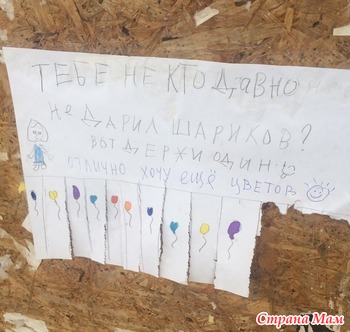 ТЕБЕ НЕ КТО ДАВНО
НЕ ДАРИЛ ШАРИКОВ?
ВОТ ДЕРЖИ ОДИН:
ОТЛИЧНО ХОЧУ ЕЩЁ ЦВЕТОВ
Страна Мам